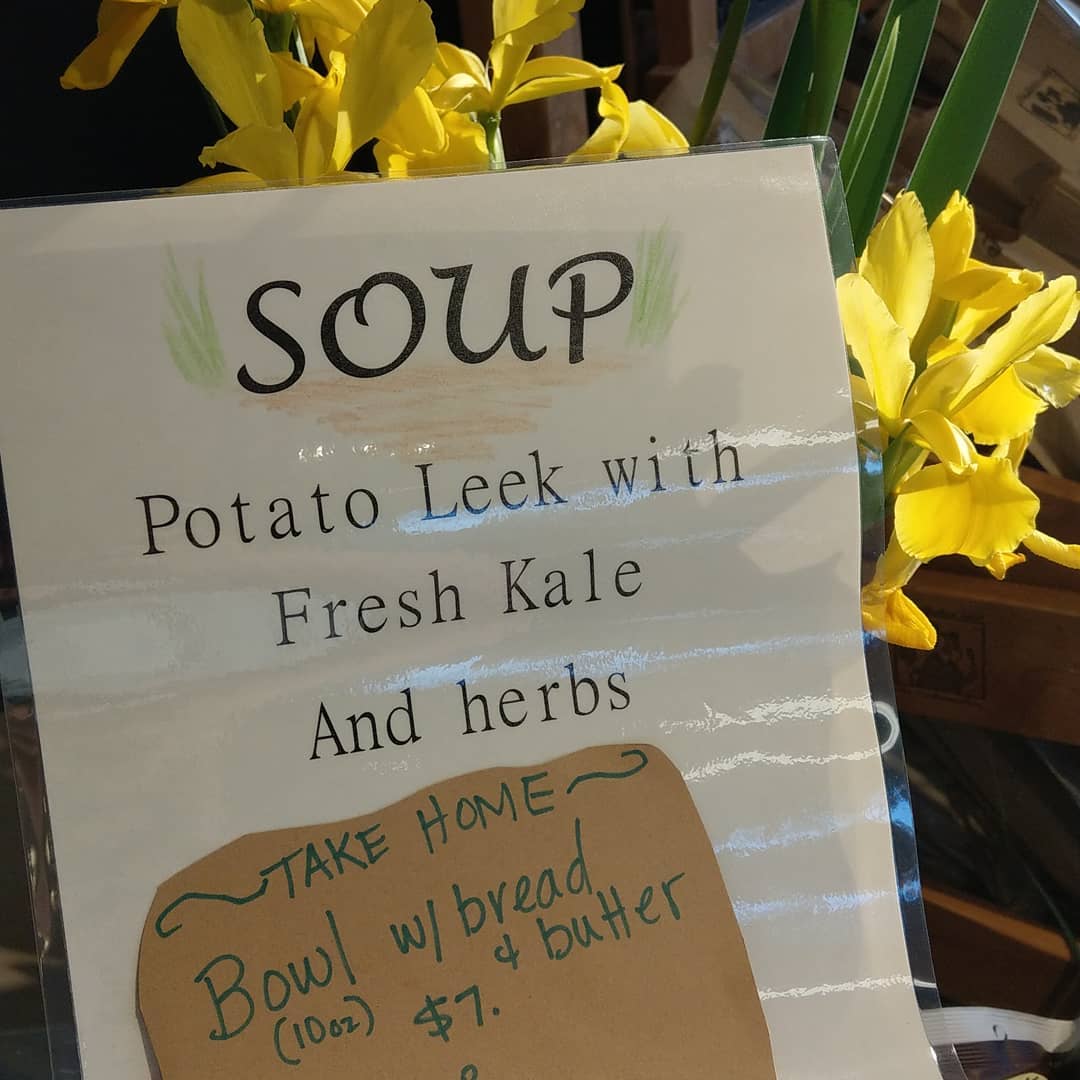 SOUP
Potato Leek with
Fresh Kale
And herbs
TAKE HOME
Bowl w/ bread
& butter
(10oz) $7.